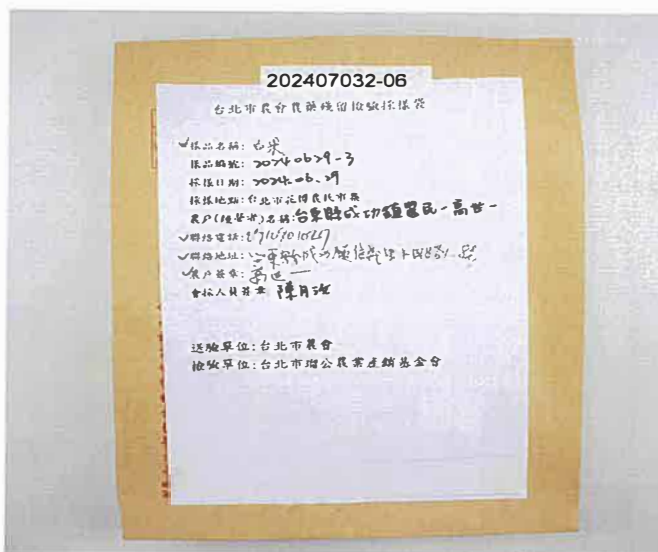 202407032-06
台北市農會農藥殘留檢驗採樣袋
✓樣品名稱:
樣品編號: 20240629-3
採樣日期: 2024.06.29
採樣地點: 台北市花博農民市集
農戶(經營者)名稱: 台東縣成功鎮農民-高世一
✓聯絡電話:
✓聯絡地址: 台東縣成功鎮信義里
✓農戶簽章:
會採人員簽章 陳月
送驗單位: 台北市農會
檢驗單位: 台北市瑠公農業產銷基金會